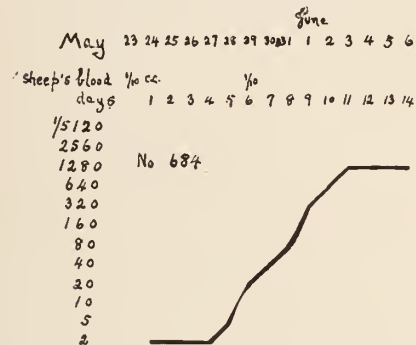 June
May 23 24 25 26 27 28 29 30 31 1 2 3 4 5 6
sheep's blood 1/10 c.c. 1/10
days 1 2 3 4 5 6 7 8 9 10 11 12 13 14
1/5120
2560
1280 No 684
640
320
160
80
40
20
10
5
2